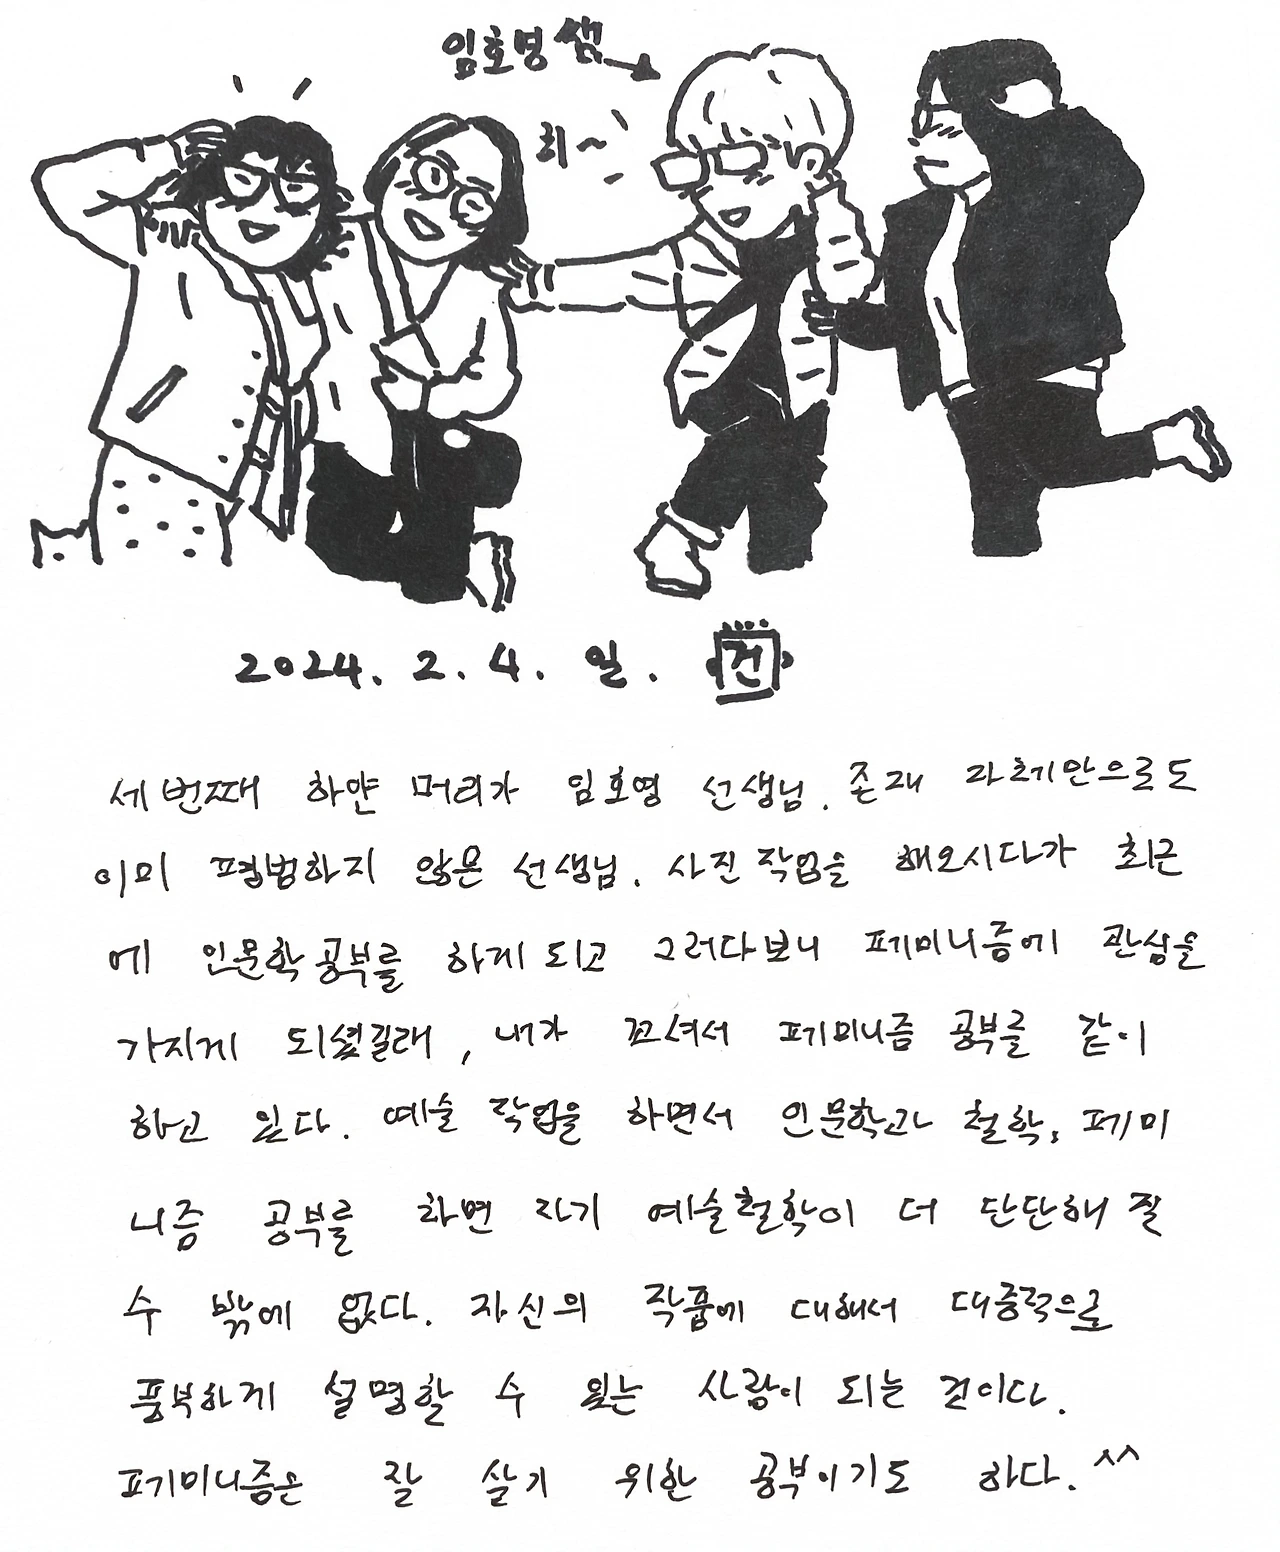 임호영 쌤
리~
2024. 2. 4. 일. 건
세번째 하얀 머리가 임호영 선생님. 존재 자체만으로도
이미 평범하지 않은 선생님. 사진작업을 해오시다가 최근
에 인문학공부를 하게되고 그러다보니 페미니즘에 관심을
가지게 되셨길래, 내가 꼬셔서 페미니즘 공부를 같이
하고 있다. 예술 작업을 하면서 인문학과 철학, 페미
니즘 공부를 하면 자기 예술철학이 더 단단해 질
수 밖에 없다. 자신의 작품에 대해서 대중적으로
풍부하게 설명할 수 있는 사람이 되는 것이다.
페미니즘은 잘 살기 위한 공부이기도 하다. ^^